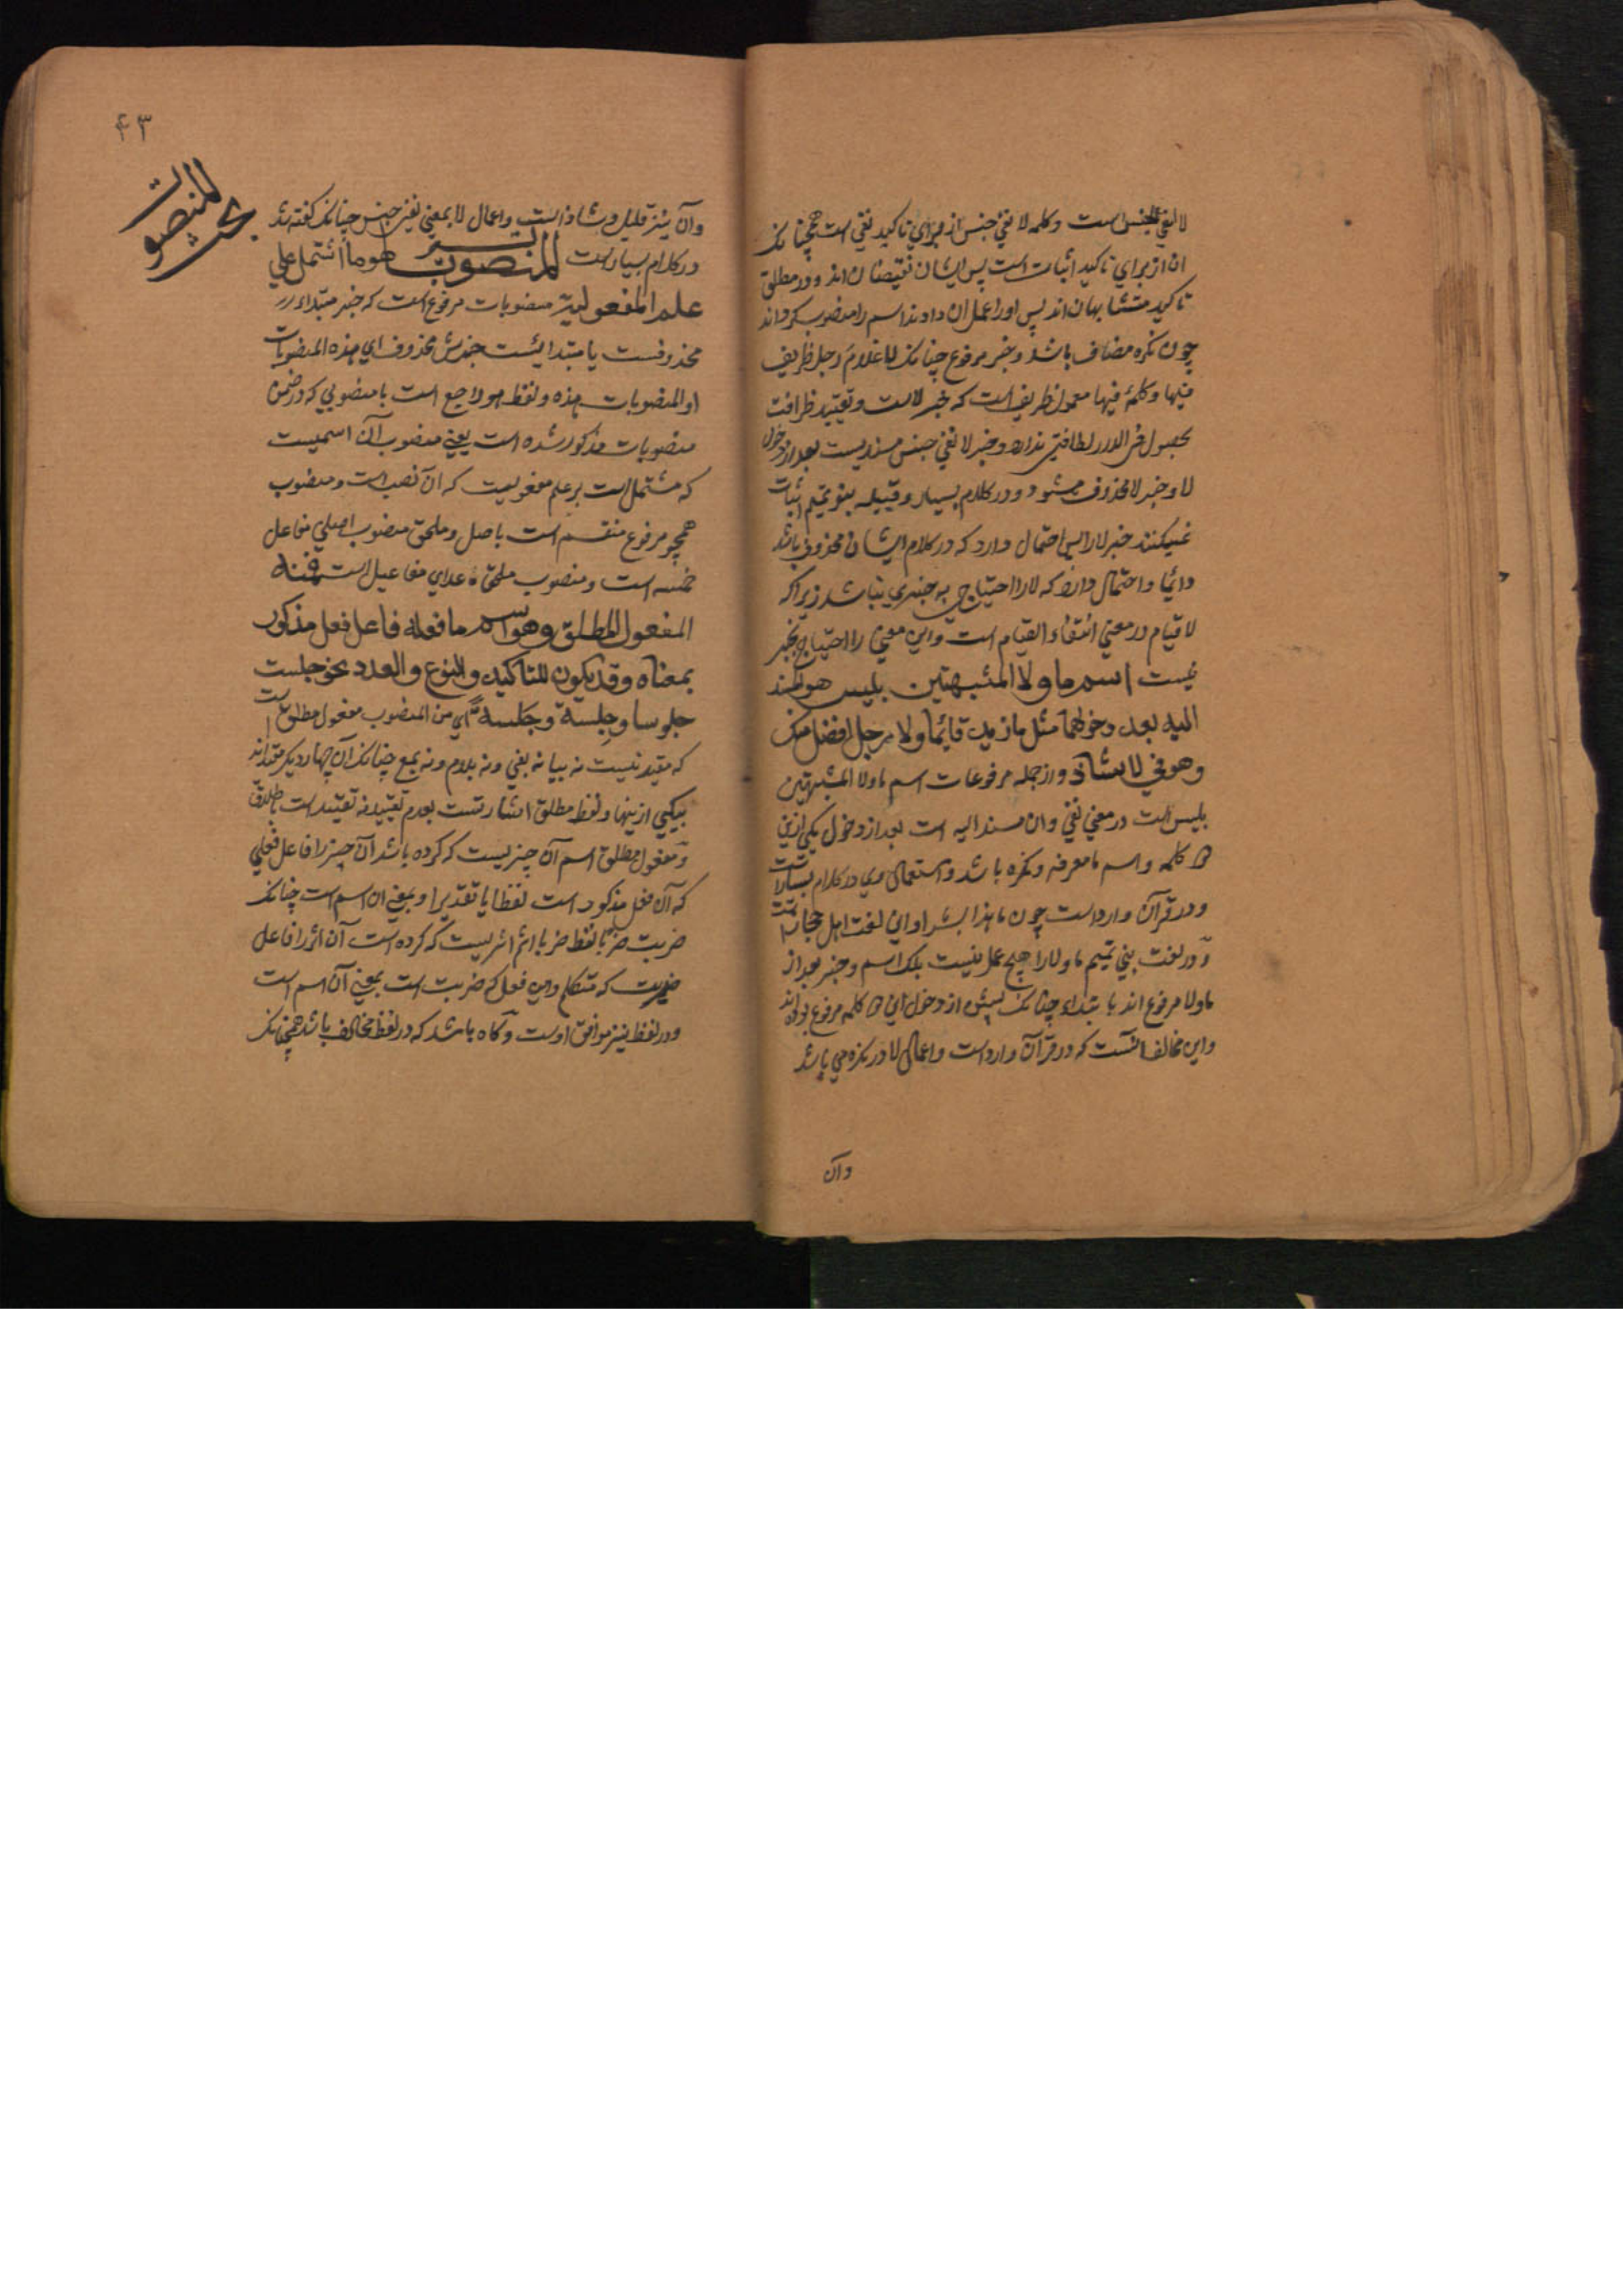 لا لنفي الجنس است وكلمه لا نفي جنس از براي تاكيد نفي است همچنانكه
ان از براي تاكيد اثبات است پس ايشان نقيضان اند و در مطلق
تاكيد متشابهان اند پس او را عمل ان دادند اسم را منصوب كرداند
چون نكره مضاف باشد و خبر مرفوع چنانكه لا غلام رجل ظريف
فيها وكلمه فيها معمول ظريف است كه خبر لاست و تقييد ظرافت
بحصول في الدار لطافتي ندارد و خبر لا نفي جنس مسنديست بعد از دخول
لا و خبر لا محذوف ميشود و در كلام بسيار و قبيله بنو تميم اثبات
نميكنند خبر لا را پس احتمال دارد كه در كلام ايشان محذوف باشد
دائما و احتمال دارد كه لا را احتياج به خبري نباشد زيراكه
لا قيام در معني انتفاء القيام است و اين معني را احتياج بخبر
نيست اسم ما ولا المشبهتين بليس هو المسند
اليه بعد دخولهما مثل ما زيد قايما ولا رجل افضل منك
وهو في لا شاذ و از جمله مرفوعات اسم ما ولا المشبهتين
بليس است در معني نفي و ان مسند اليه است بعد از دخول يكي ازين
كلمه و اسم ما معرفه و نكره باشد و استعمال وي در كلام بسيارست
و در قرآن وارد است چون ما هذا بشرا و اين لغت اهل حجازست
و در لغت بني تميم ما و لا را هيچ عمل نيست بلكه اسم و خبر بعد از
ما و لا مرفوع اند بابتداء چنانكه پيش از دخول اين كلمه مرفوع بوده اند
و اين مخالف انست كه در قرآن وارد است و اعمال لا در نكره مي باشد
وآن
۴۳
بحث المنصوبات
وآن نيز قليل و شاذ است و اعمال لا بمعني نفي جنس چنانكه كفته شد
در كلام بسيارست المنصوبات هو ما اشتمل علي
علم المفعولية منصوبات مرفوع است كه خبر مبتداء
محذوفست يا مبتدائيست خبرش محذوف اي هذه المنصوبات
او المنصوبات هذه و لفظ هو راجع است بامنصوبي كه در ضمن
منصوبات مذكور شده است يعني منصوب آن اسميست
كه مشتمل است بر علم مفعوليت كه آن نصب است و منصوب
همچو مرفوع منقسم است باصل و ملحق منصوب اصلي مفاعل
خمسه است و منصوب ملحق ما عداي مفاعيل است فمنه
المفعول المطلق وهو اسم ما فعله فاعل فعل مذكور
بمعناه وقد يكون للتاكيد والنوع والعدد نحو جلست
جلوسا وجلسة وجلسة اي من المنصوب مفعول مطلق است
كه مقيد نيست نه ببا نه بفي و نه بلام و نه بمع چنانكه آن چهار ديكر مقيد اند
بيكي ازينها و لفظ مطلق اشارتست بعدم تقييد نه تقييد است باطلاق
و مفعول مطلق اسم آن چيزيست كه كرده باشد آن چيز را فاعل فعلي
كه آن فعل مذكور است لفظا يا تقديرا و بمعني ان اسم است چنانكه
ضربت ضربا لفظ ضربا اسم اثريست كه كرده است آن اثر را فاعل
ضربت كه متكلم و اين فعل كه ضربت است بمعني آن اسم است
و در لفظ نيز موافق اوست و كاه باشد كه در لفظ مخالف باشد همچنانكه